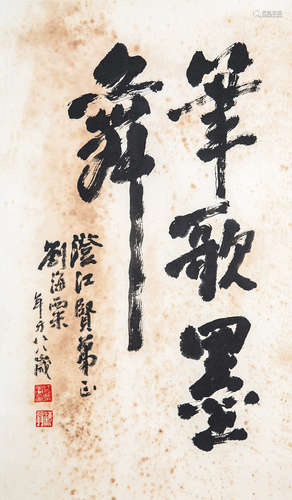 筆歌墨
舞
澄江賢弟正
劉海粟
年方八八歲